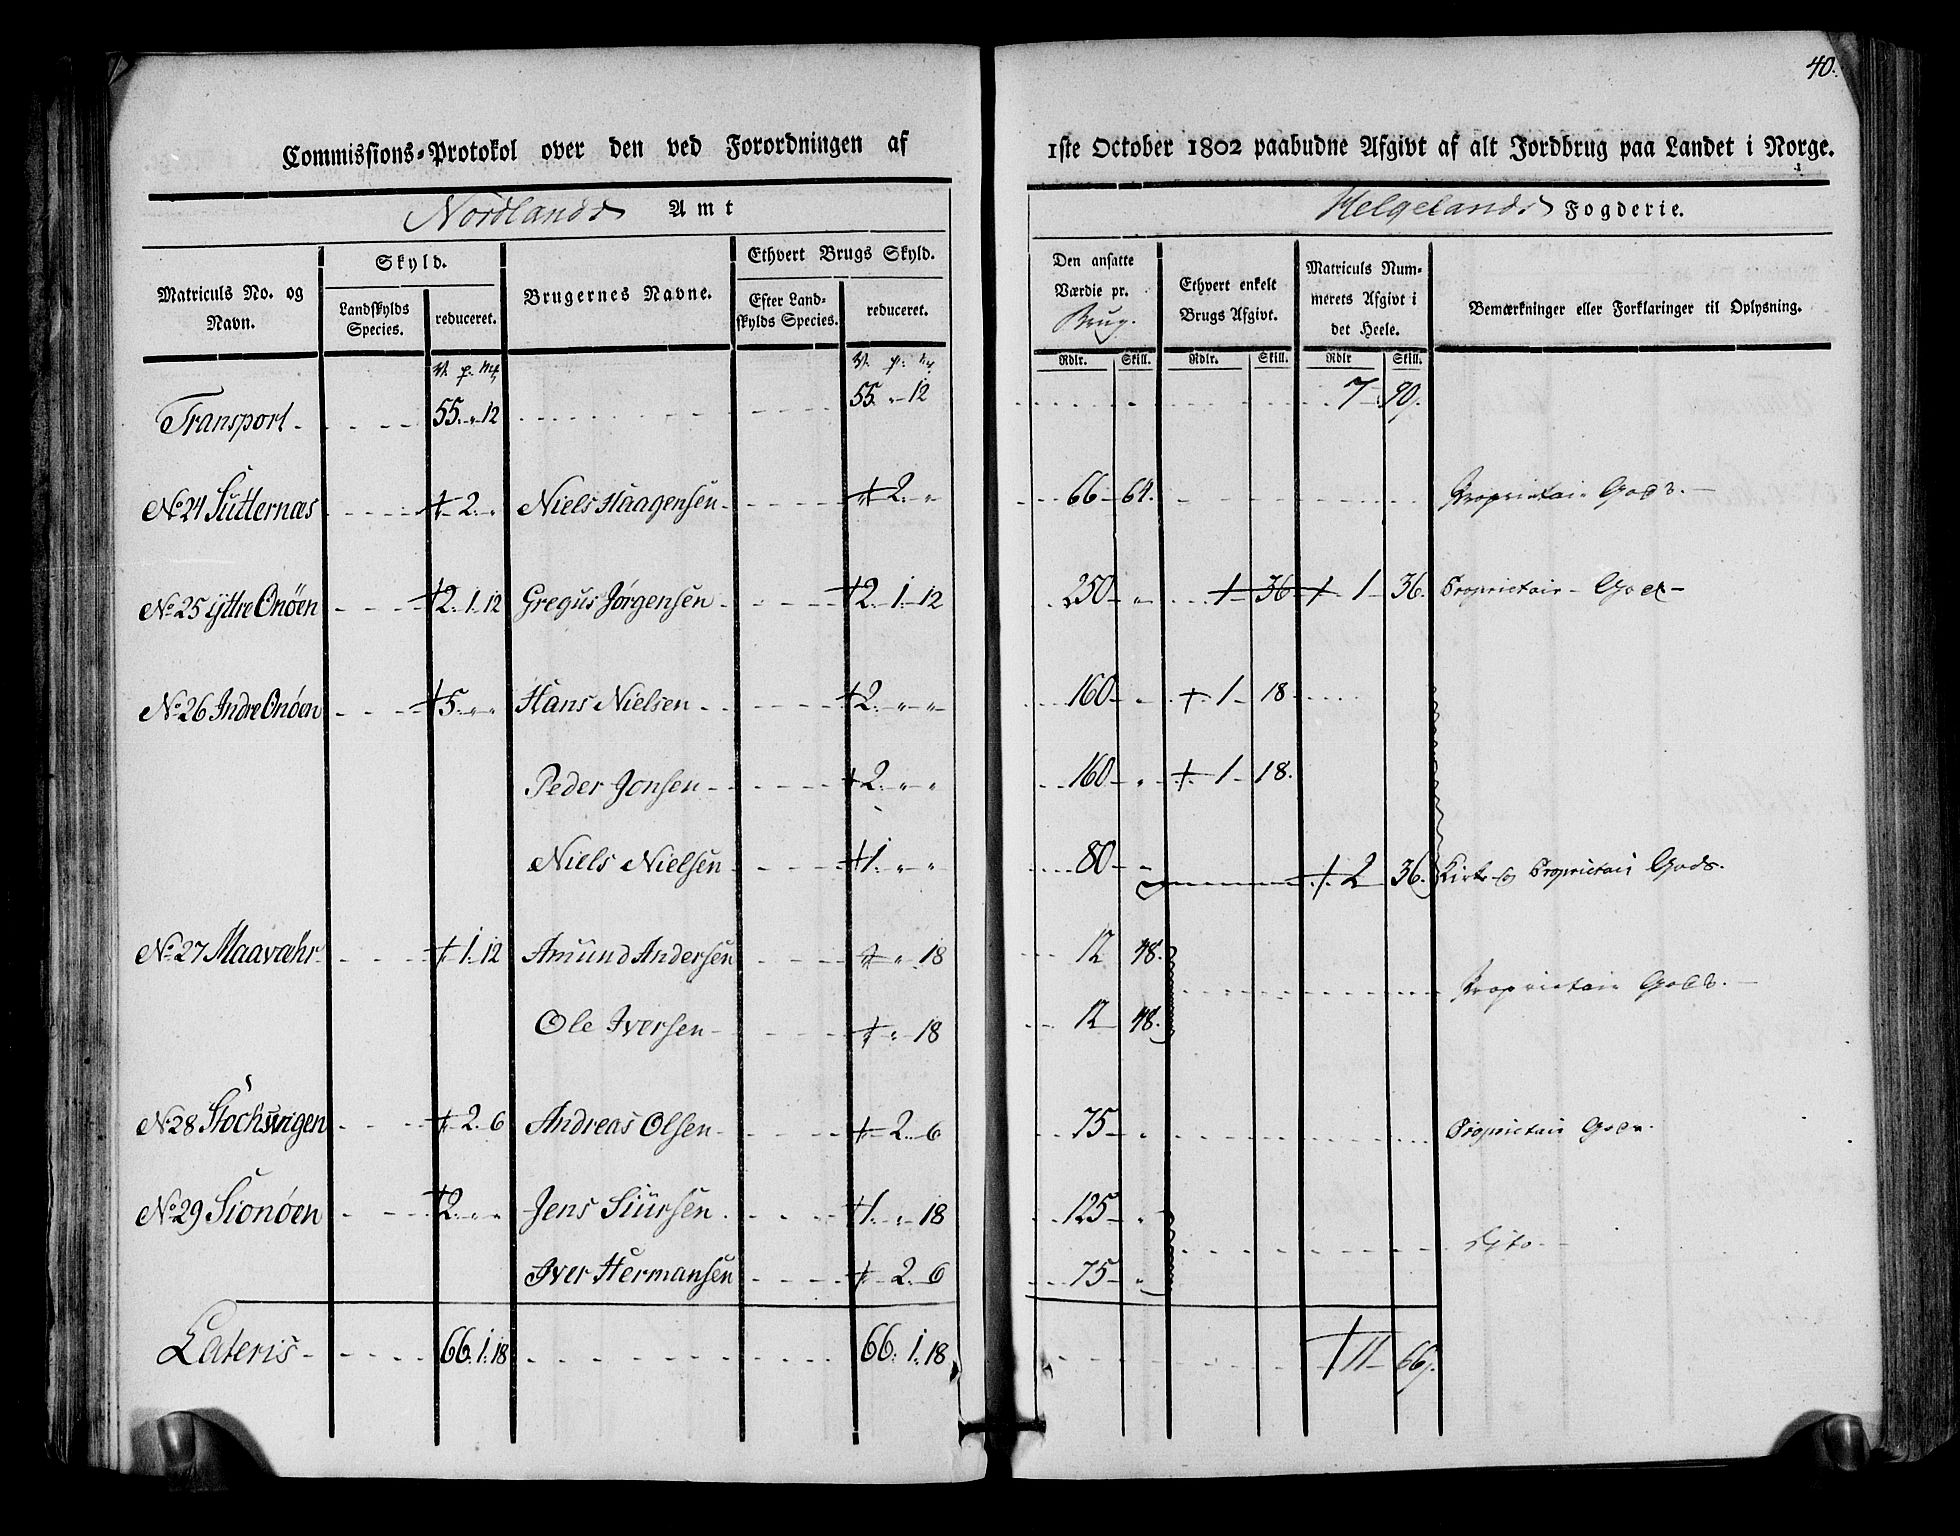 40.
Commissions-Protokol over den ved Forordningen af 1ste October 1802 paabudne Afgivt af alt Jordbrug paa Landet i Norge.
Nordlands Amt Helgelands Fogderie.
Matriculs No. og Navn. Skyld. Landskylds Species. reduceret. Brugernes Navne. Ethvert Brugs Skyld. Efter Landskylds Species. reduceret. Den ansatte Værdie pr. Brug. Ethvert enkelt Brugs Afgivt. Matriculs Nummerets Afgivt i det Heele. Bemærkninger eller Forklaringer til Oplysning.
V. p. mk V. p. mk Rdlr. Skill. Rdlr. Skill. Rdlr Skill.
Transport 55. " 12 55. " 12 7 90.
No. 24 Sutternæs + 2. " Niels Haagensen + 2. " 66 64. Proprietair Gods.
No. 25 Yttre Onöen + 2. 1. 12 Gregus Jørgensen + 2. 1. 12 250 " + 36 + 1 36. Proprietair Gods
No. 26 Indre Onöen + 5. " " Hans Nielsen + 2. " " 160 " + 1 18
Peder Jonsen + 2. " " 160 " + 1 18.
Niels Nielsen + 1. " " 80 " + 2 36. Kirke og Proprietair Gods.
No. 27 Maavæhr + 1. 12 Amund Andersen + " 18 12 48. Proprietair Gods.
Ole Iversen + " 18 12 48.
No. 28 + 2. 6 Andreas Olsen + 2. 6 75 " Proprietair Gods.
No. 29 Sionöen + 2. " " Jens Siursen + 1. " 18 125 " Dito
Iver Hermansen + 2. 6 75 "
Lateris 66. 1. 18 66. 1. 18 + 11 66.